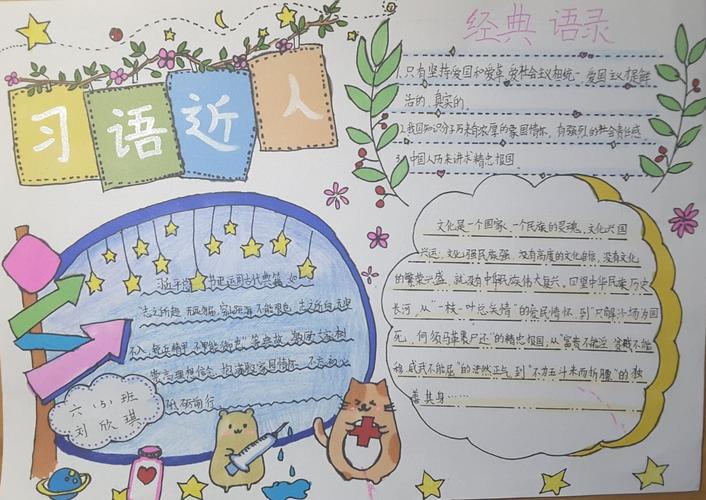 习语近人
经典 语录
1.只有坚持爱国和爱党、爱社会主义相统一,爱国主义才是鲜
活的、真实的。
2.我国知识分子历来有浓厚的家国情怀,有强烈的社会责任感
3.中国人历来讲求精忠报国。
文化是一个国家、一个民族的灵魂。文化兴国
兴运,文化强民族强。没有高度的文化自信,没有文化
的繁荣兴盛,就没有中华民族伟大复兴。回望中华民族历史
长河,从"一枝一叶总关情"的爱民情怀,到"只解沙场为国
死,何须马革裹尸还"的精忠报国,从"富贵不能淫 贫贱不能
移,威武不能屈"的浩然正气,到"不为五斗米而折腰"的独
善其身……
习近平
古代典籍
"志之所趋,无远弗届,穷山距海,不能限也。志之所向,无坚
不入,锐兵精甲,不能御也"
崇高理想信念
家国情怀,不忘初心
砥砺前行
六(5)班
刘欣琪